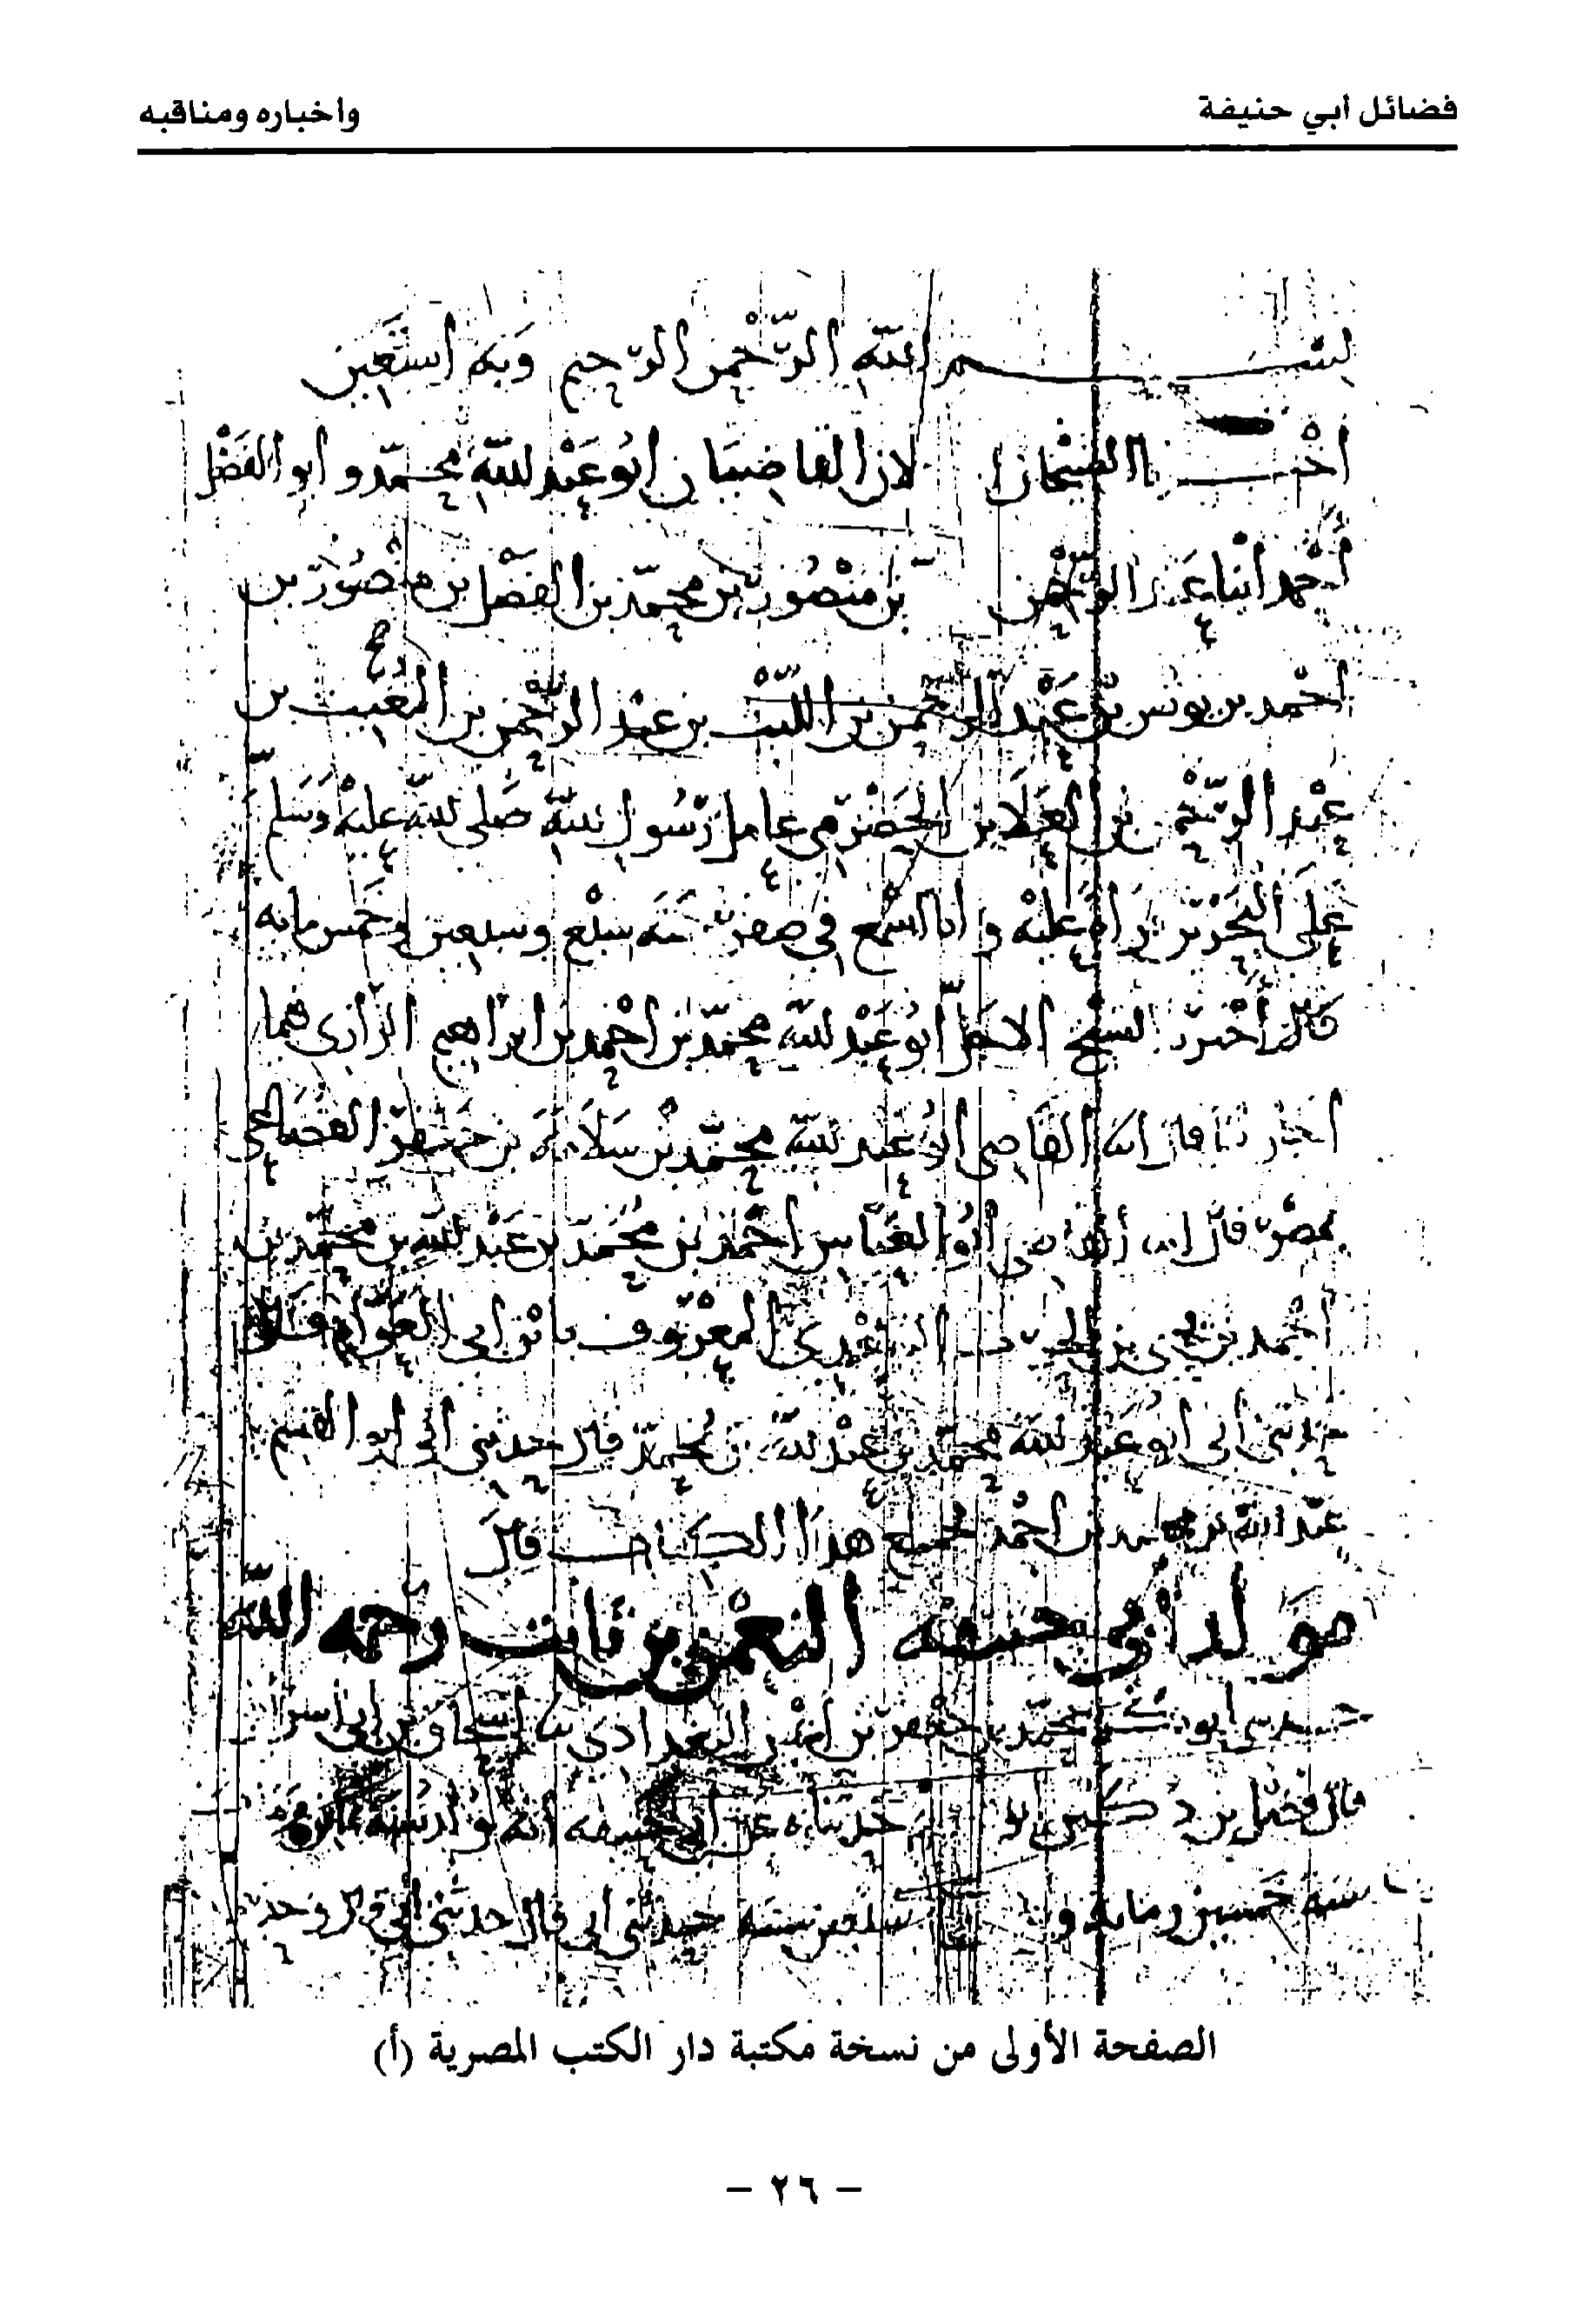 فضائل أبي حنيفة
واخباره ومناقبه
بسم الله الرحمن الرحيم وبه استعين
القاضيان ابو عبد الله محمد و ابو الفضل
احمد ابنا عبد الرحمن بن منصور بن محمد بن الفضل بن منصور بن
احمد بن يونس بن عبد الرحمن بن الليث بن عبد الرحمن بن المغيث بن
عبد الرحمن بن العلا بن الحضرمي عامل رسول الله صلى الله عليه وسلم
على البحرين عليه وانا اسمع في صفر سنه سبع وسبعين وخمس مايه
قال الشيخ ابو عبد الله محمد بن احمد بن ابراهيم الرازي فيما
القاضي ابو عبد الله محمد بن سلامة بن جعفر القضاعي
بمصر قال ابو العباس احمد بن محمد بن عبد الله بن محمد بن
احمد بن يحيى بن الحرث السعدي المعروف بابن ابي العوام قال
حدثني ابي ابو عبد الله محمد بن عبد الله بن محمد قال حدثني ابي ابو القسم
عبد الله بن محمد بن احمد هذا الكتاب قال
مولد أبي حنيفه النعمن بن ثابت رحمه الله
محمد بن جعفر بن البغدادي اسحاق بن ابي اسرائيل
قال فضل بن دكين ابي حنيفه انه ولد سنة
سنه خمسين ومايه سبعين سنه حدثني ابي قال حدثني ابي قال
الصفحة الأولى من نسخة مكتبة دار الكتب المصرية (أ)
- ٢٦ -